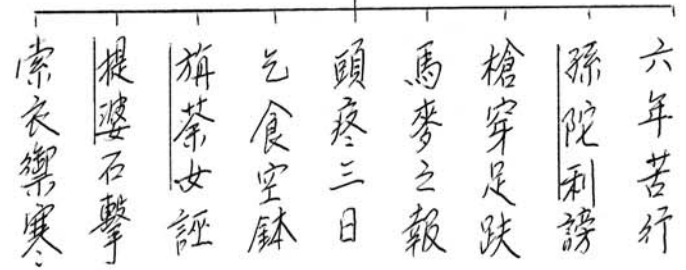 六年苦行
孫陀利謗
槍穿足趺
馬麥之報
頭疼三日
乞食空鉢
旃荼女誣
提婆石擊
索衣禦寒